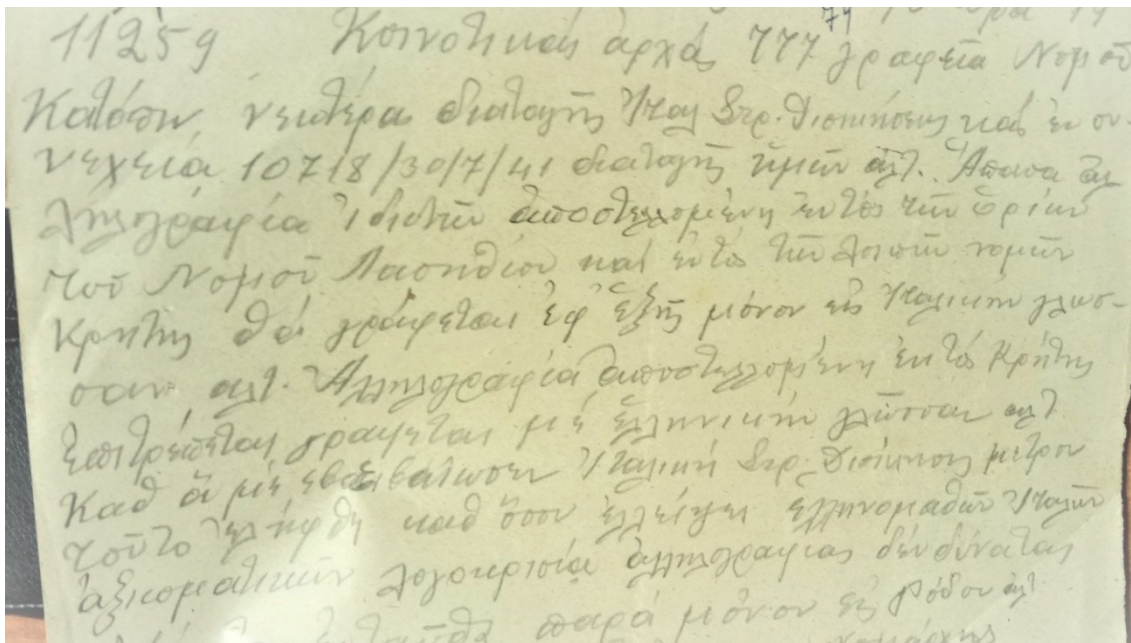 11259 Κοινοτικάς ἀρχάς 777 γραφεῖα Νομοῦ
Κατόπιν νεωτέρας διαταγῆς Ἰταλ Στρ. Διοικήσεως καί ἐν συ-
νεχεία 10718/30/7/41 διαταγῆς ἡμῶν αλτ. Ἅπασα ἀλ
ληλογραφία ἰδιωτῶν ἀποστελλομένη ἐντός τῶν ὁρίων
τοῦ Νομοῦ Λασηθίου καί ἐντός τῶν λοιπῶν νομῶν
Κρήτης θά γράφεται ἐφ ἑξῆς μόνον εἰς Ἰταλικήν γλωσ-
σαν αλτ. Ἀλληλογραφία ἀποστελλομένη ἐκτός Κρήτης
ἐπιτρέπεται γράφεται μέ ἑλληνικήν γλῶσσαν αλτ
Καθ ἅ μέ Ἰταλική Στρ. Διοίκησις μέτρον
τοῦτο ἐλήφθη καθ ὅσον ἐλλείψει ἑλληνομαθῶν Ἰταλῶν
ἀξιωματικῶν λογοκρισία ἀλληλογραφίας δέν δύναται
παρά μόνον εἰς Ρόδον αλτ